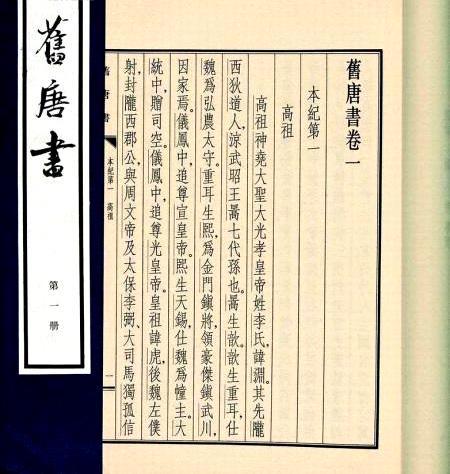 舊唐書卷一
本紀第一
高祖
高祖神堯大聖大光孝皇帝姓李氏,諱淵。其先隴
西狄道人,涼武昭王暠七代孫也。暠生歆,歆生重耳,仕
魏爲弘農太守。重耳生熙,爲金門鎮將,領豪傑鎮武川,
因家焉。儀鳳中,追尊宣皇帝。熙生天錫,仕魏爲幢主。大
統中,贈司空。儀鳳中,追尊光皇帝。皇祖諱虎,後魏左僕
射,封隴西郡公,與周文帝及太保李弼、大司馬獨孤信
舊唐書
本紀第一 高祖
一
舊唐書
第一冊